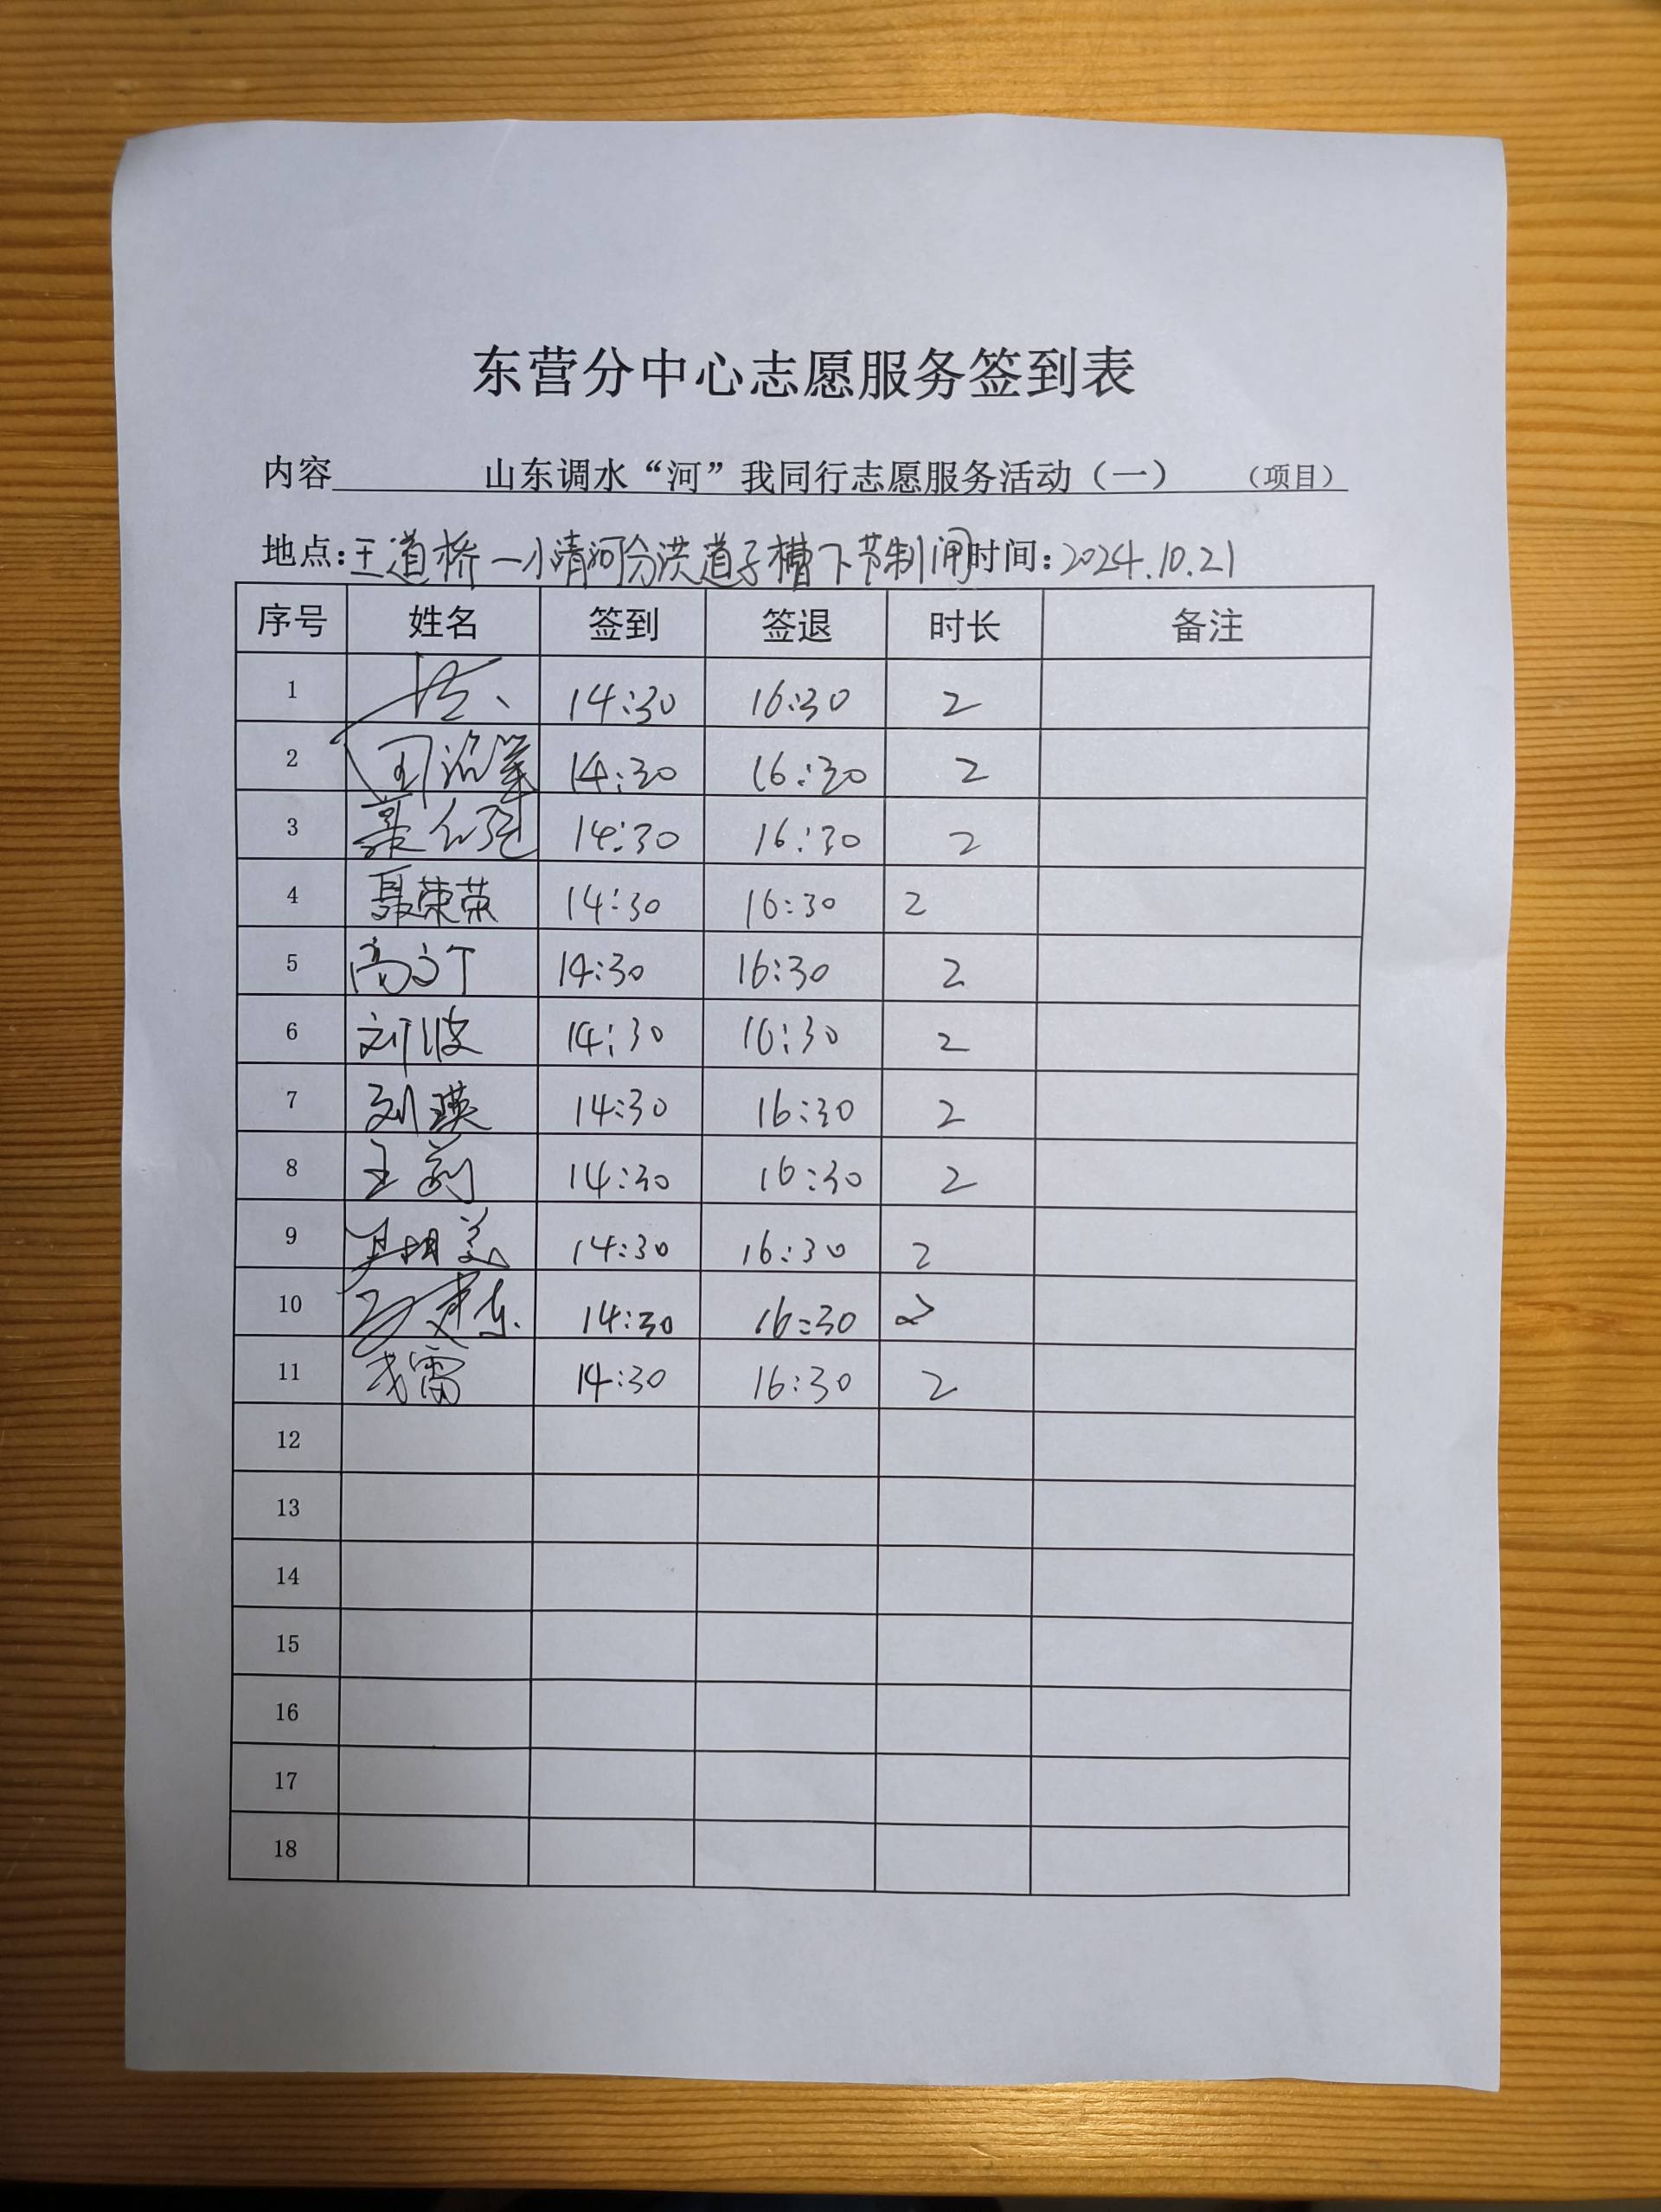 东营分中心志愿服务签到表
内容 山东调水“河”我同行志愿服务活动（一） （项目）
地点:王道桥—小清河分洪道子槽下节制闸时间:2024.10.21
序号 姓名 签到 签退 时长 备注
1 14:30 16:30 2
2 14:30 16:30 2
3 14:30 16:30 2
4 聂荣荣 14:30 16:30 2
5 高文丁 14:30 16:30 2
6 刘波 14:30 16:30 2
7 刘瑛 14:30 16:30 2
8 王莉 14:30 16:30 2
9 14:30 16:30 2
10 14:30 16:30 2
11 雷 14:30 16:30 2
12
13
14
15
16
17
18